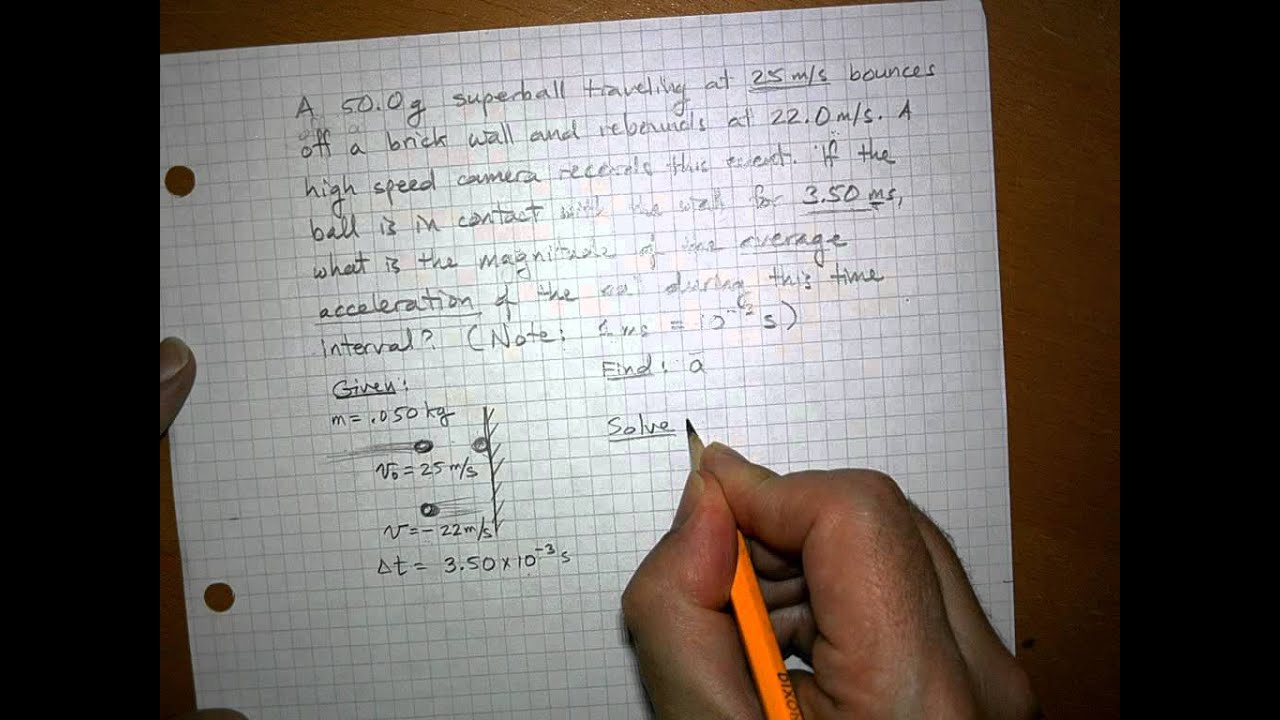 A 50.0g superball traveling at 25 m/s bounces
off a brick wall and rebounds at 22.0 m/s. A
high speed camera records this event. If the
ball is in contact with the wall for 3.50 ms,
what is the magnitude of the average
acceleration of the during this time
interval? (Note: 1 ms = s)
Given:
m = .050 kg
v₀ = 25 m/s
v = - 22 m/s
Δt = 3.50 × 10⁻³ s
Find: a
Solve
DIXON